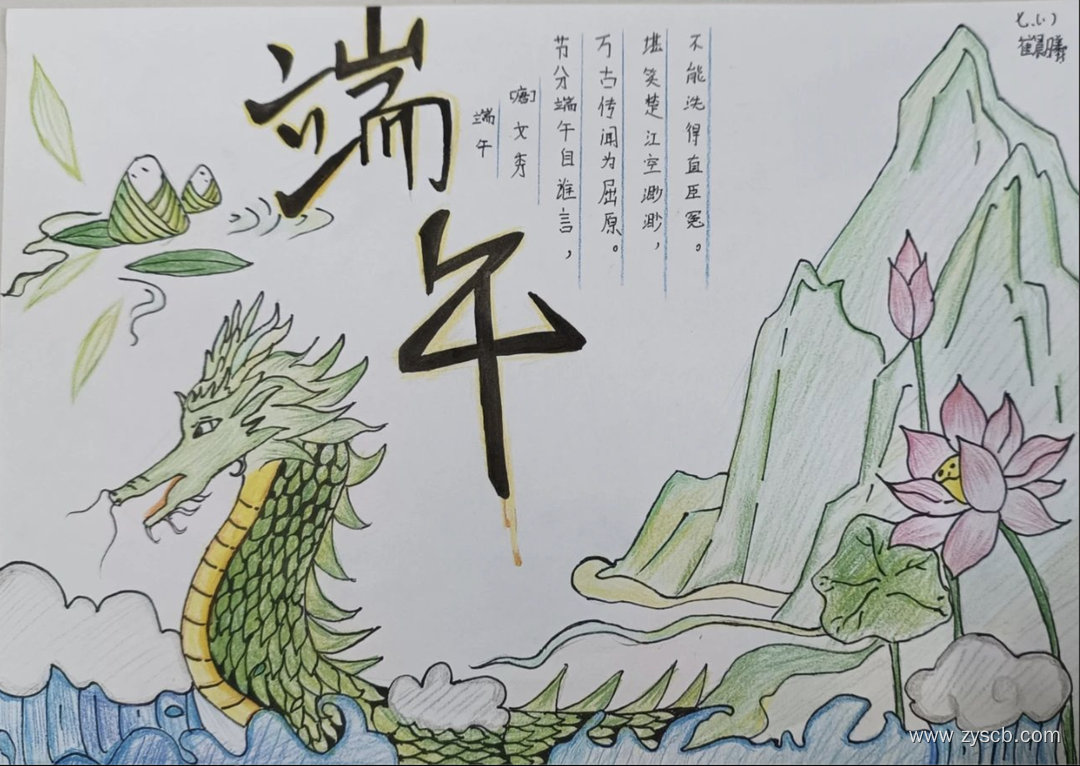 端午
端午
[唐]文秀
节分端午自谁言，
万古传闻为屈原。
堪笑楚江空渺渺，
不能洗得直臣冤。
七.(1)
www.zyscb.com